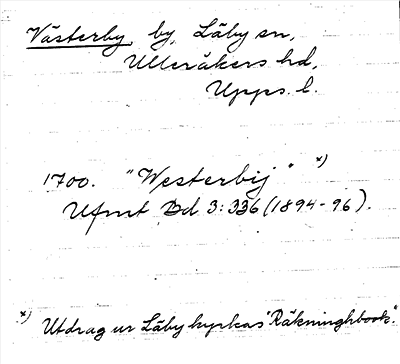 Västerby, by, Läby sn,
Ulleråkers hd,
Upps. l.
1700. "Westerbij" x)
Ufmt Bd 3:336 (1894-96).
x) Utdrag ur Läby kyrkas "Räkninghbook".